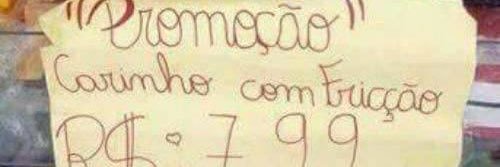 "Promoção"
Carinho com Fricção
R$: 7 99